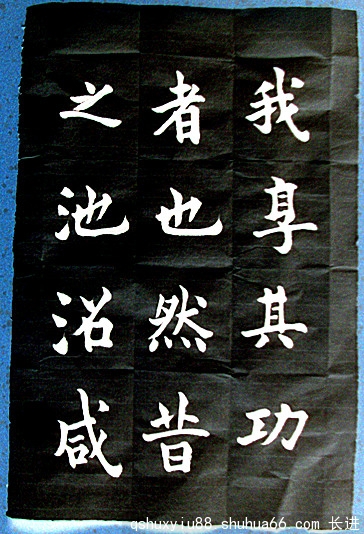 我享其功
者也然昔
之池沼咸
qshuxyju88 shuhua66 com 长进